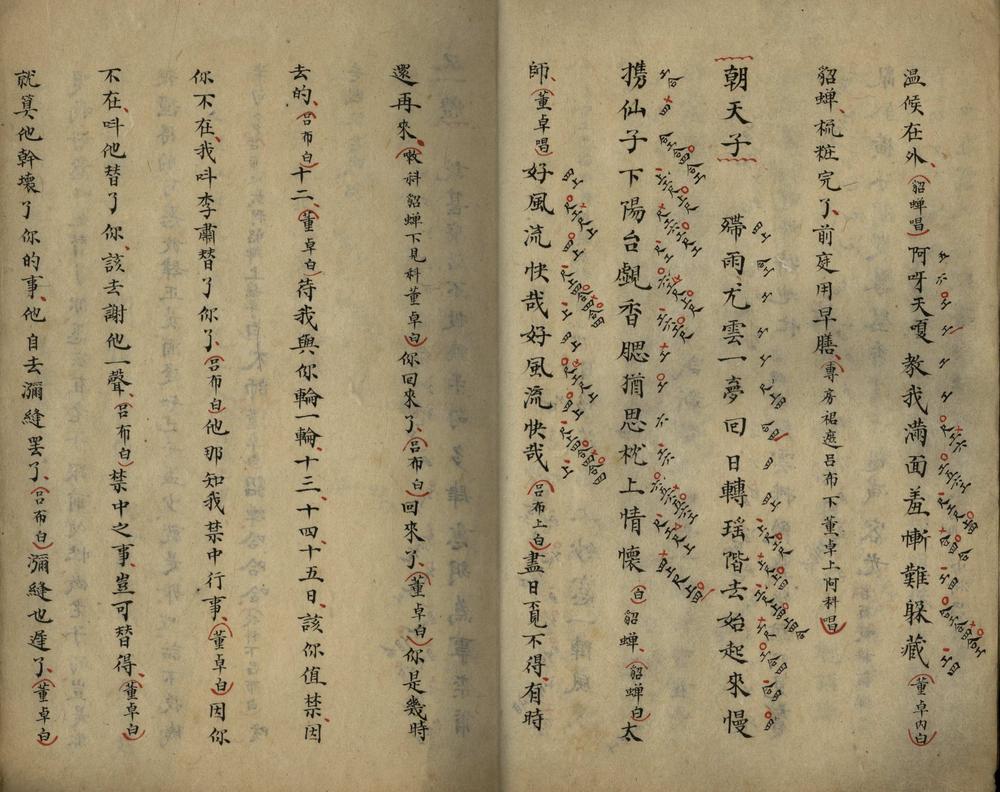 温候在外、(貂蟬唱)阿呀天嗄教我滿面羞慚難躱藏(董卓内白)
貂蟬、梳粧完了、前庭用早膳、(専房裙遮呂布下董卓上阿科唱)
朝天子 殢雨尤雲一夢回日轉瑶階去始起來慢
携仙子下陽台覷香腮猶思枕上情懷(白)貂蟬、(貂蟬白)太
師、(董卓唱)好風流快哉好風流快哉(呂布上白)盡日覔不得、有時
還再來、(科貂蟬下見科董卓白)你回來了、(呂布白)回來了、(董卓白)你是幾時
去的、(呂布白)十二、(董卓白)待我與你輪一輪、十三、十四、十五日、該你值禁、因
你不在、我呌李肅替了你了、(呂布白)他那知我禁中行事、(董卓白)因你
不在、呌他替了你、該去謝他一聲、(呂布白)禁中之事、豈可替得、(董卓白)
就算他幹壞了你的事、他自去瀰縫罷了、(呂布白)瀰縫也遲了、(董卓白)